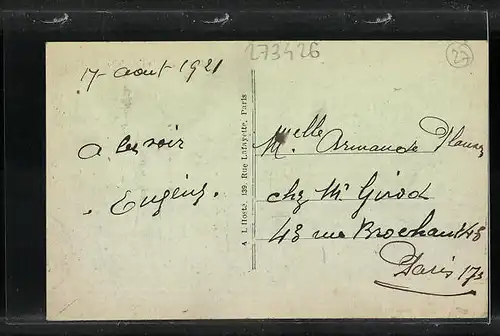 273426
27
17 aout 1921
a ce soir
Eugène
A. L'Hoste, 139, Rue Lafayette, Paris
Melle Armande
chez Mr Girod
43 rue Brochant 43
Paris 17e